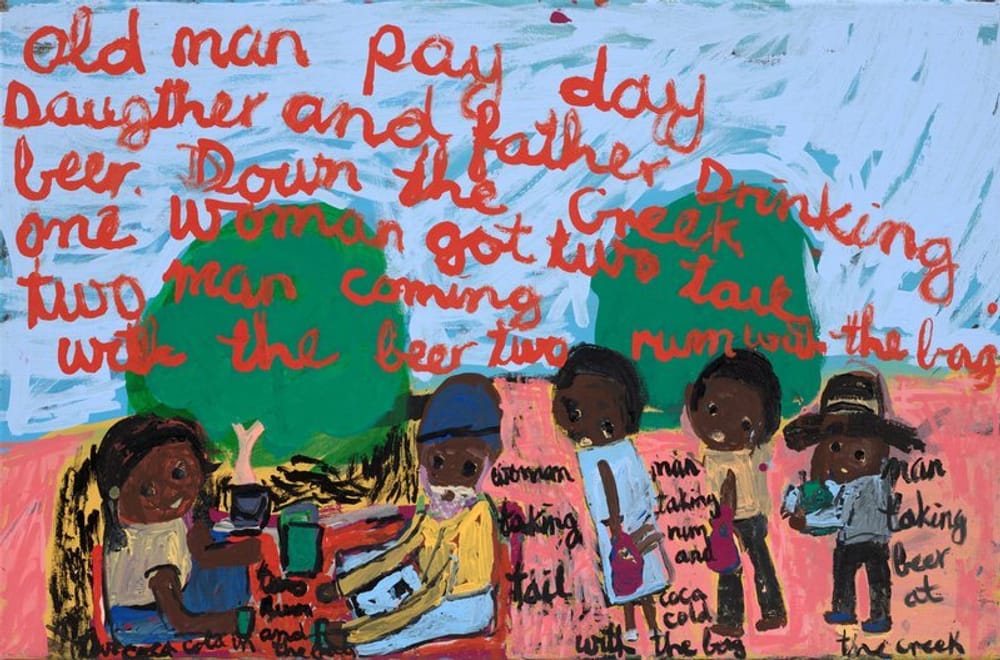 old man pay day
Daugther and father Drinking
beer. Down the Creek
one woman got two tail
two man coming
with the beer two rum with the bag
two
Rum
and
coca cola in the
woman
taking
tail
man
taking
rum
and
coca
cold
with the bag
man
taking
beer
at
the creek